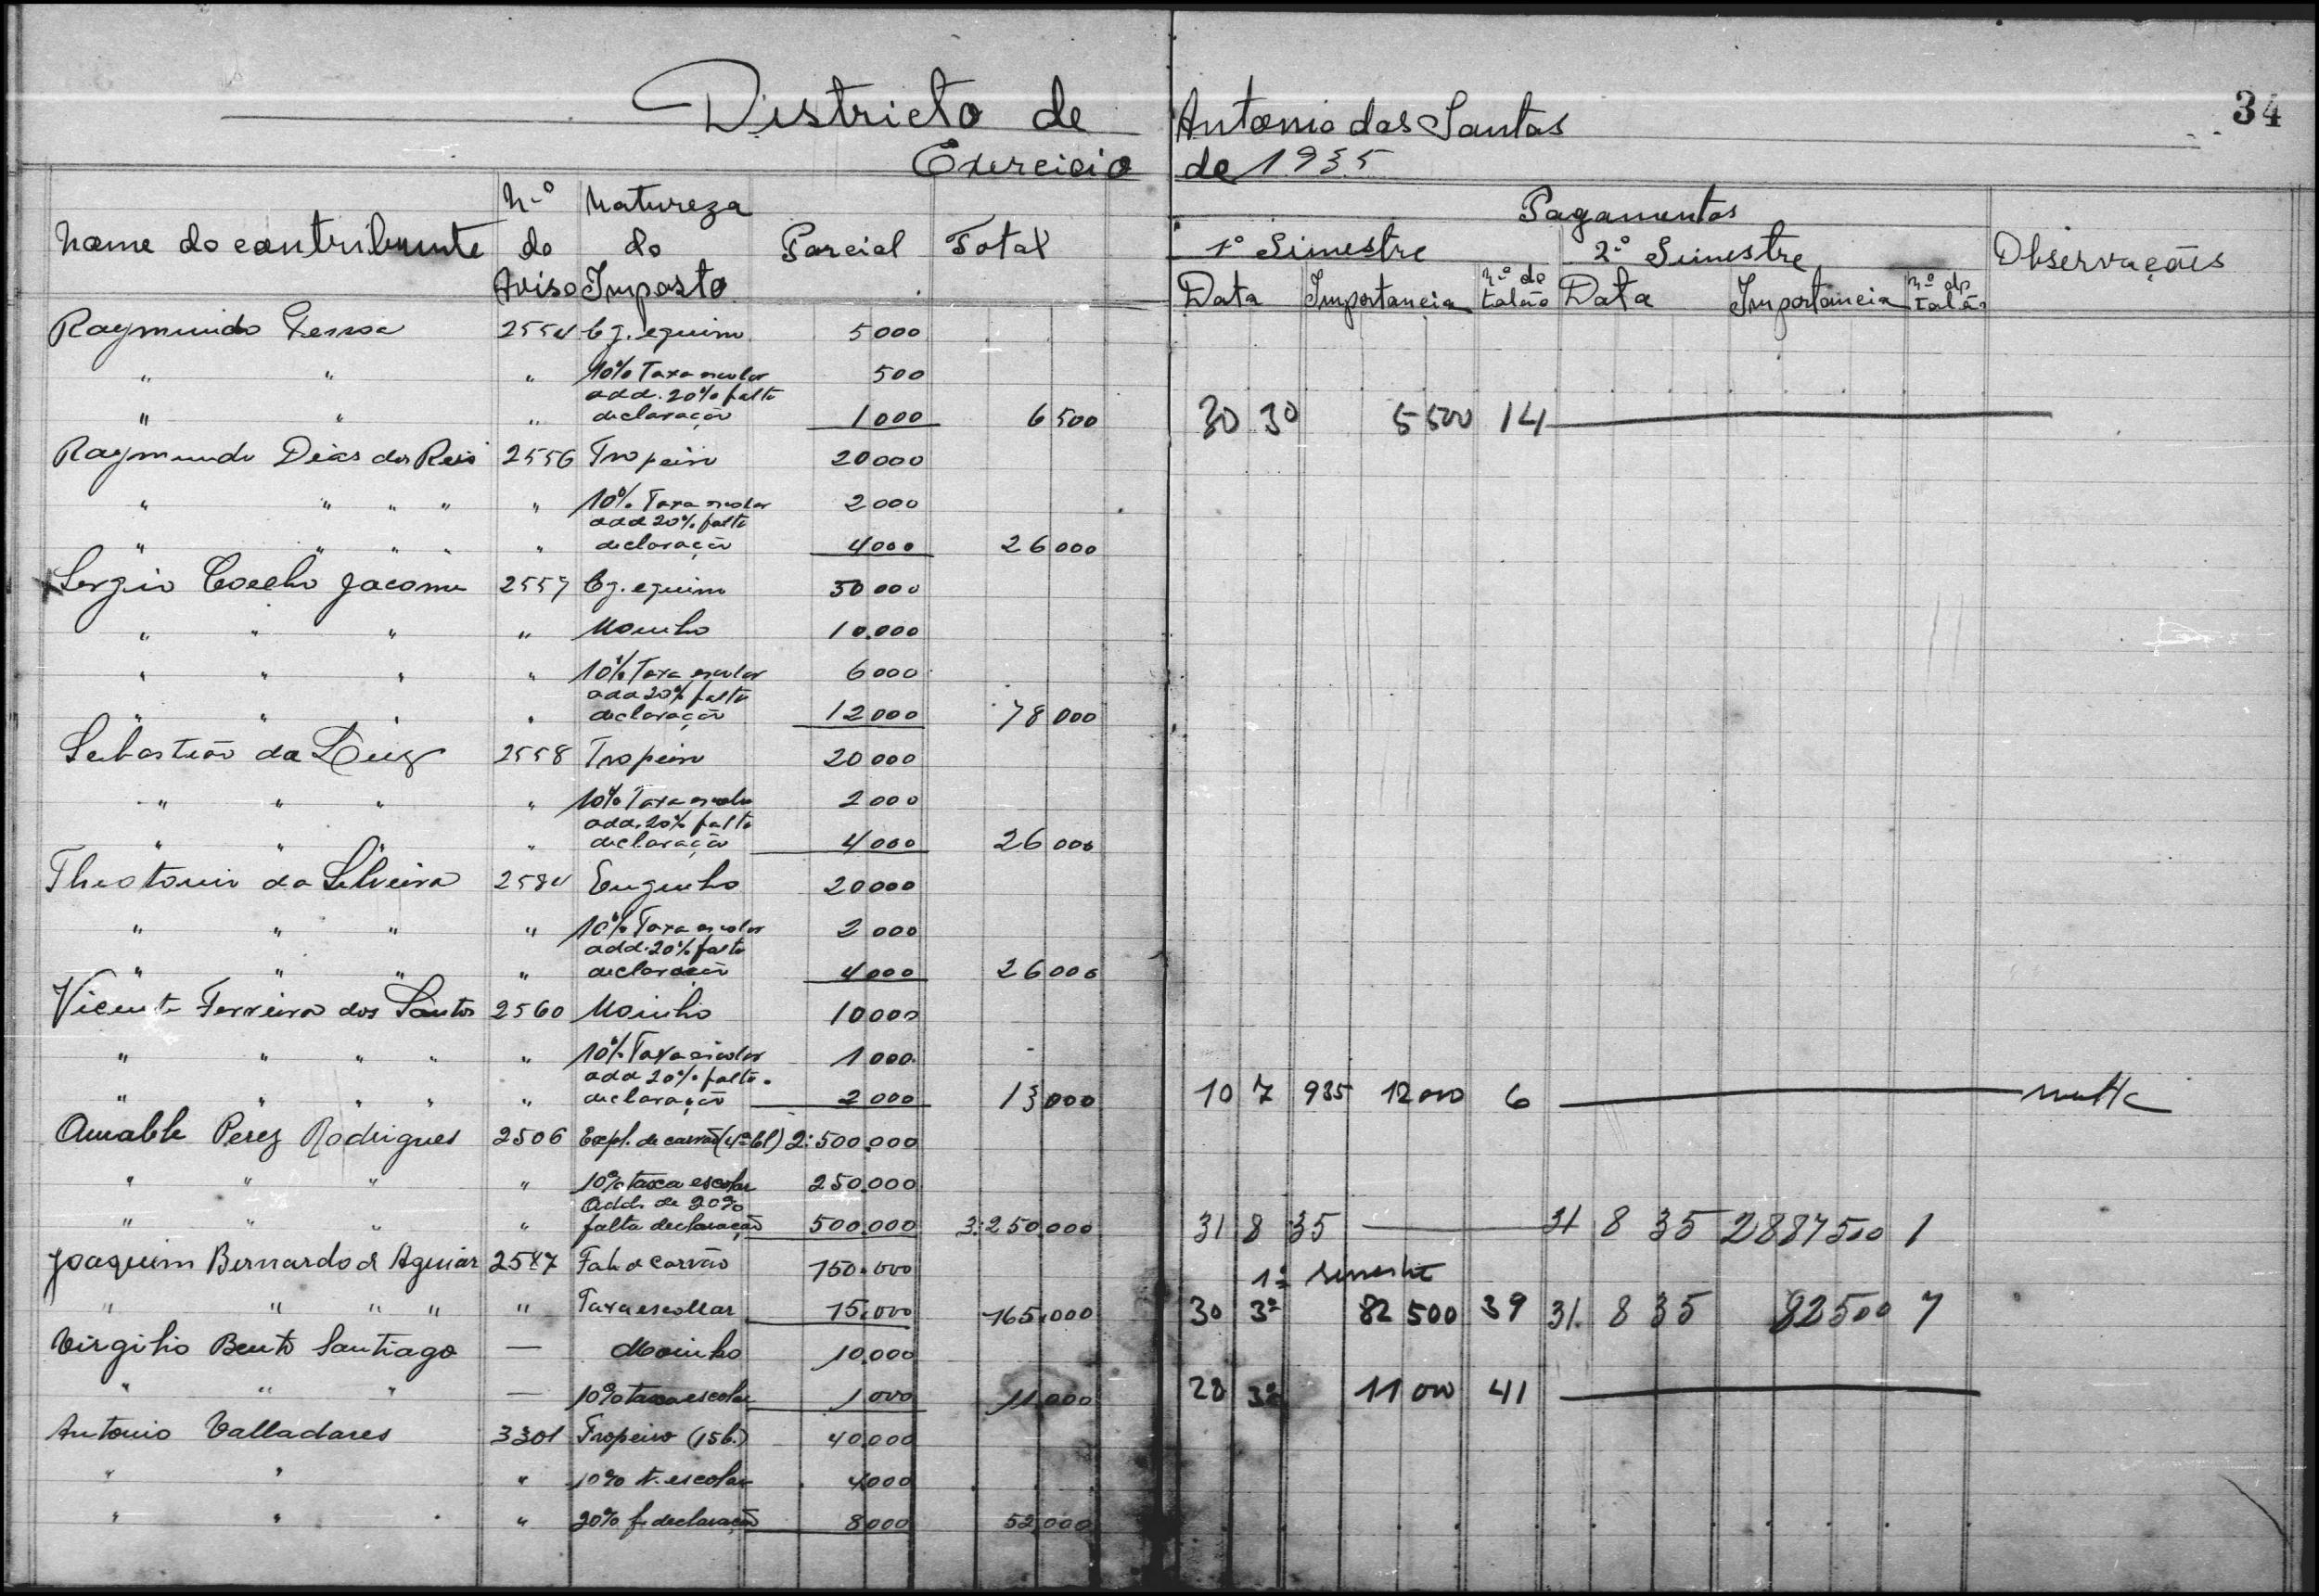 34
Districto de Antonio dos Santos
Exercicio de 1935
Nome do contribuinte Nº do Aviso Natureza do Imposto Parcial Total Pagamentos Observações
1º Simestre 2º Simestre
Data Importancia Nº do talão Data Importancia Nº do talão
Raymundo 2554 Cg. equino 5000
" " " 10% Taxa escolar 500
add. 20% falta
" " " declaração 1000 6500 30 30 5500 14
Raymundo Dias dos Reis 2556 Tropeiro 20000
" " " " " 10% Taxa escolar 2000
add 20% falta
" " " " " declaração 4000 26000
Sergio Coelho Jacome 2557 Cg. equino 50000
" " " " Moinho 10.000
" " " " 10% Taxa escolar 6000
add 20% falta
" " " " declaração 12000 78000
Sebastião da Luz 2558 Tropeiro 20000
" " " " 10% Taxa escolar 2000
add. 20% falta
" " " " declaração 4000 26000
Theotonio da Silveira 2584 Engenho 20000
" " " " 10% Taxa escolar 2000
add. 20% falta
" " " " declaração 4000 26000
Vicente Ferreira dos Santos 2560 Moinho 10000
" " " " " 10% Taxa escolar 1000
add 20% falta
" " " " " declaração 2000 13000 10 7 935 12000 6 multa
Amable Perez Rodrigues 2506 Expl. de carvão (4ª Cl) 2:500.000
" " " " 10% taxa escolar 250.000
Add. de 20%
" " " " falta declaração 500.000 3:250.000 31 8 35 31 8 35 2887500 1
Joaquim Bernardo de Aguiar 2587 Fab. de carvão 150.000
1º semestre
" " " " " Taxa escollar 15.000 165.000 30 3º 82500 39 31 8 35 82500 7
Virgilio Bento Santiago — Moinho 10.000
" " " — 10% taxa escolar 1000 11.000 28 3º 11000 41
Antonio Valladares 3301 Tropeiro (15b.) 40.000
" " " 10% t. escolar 4000
" " " 20% f. declaração 8000 52.000